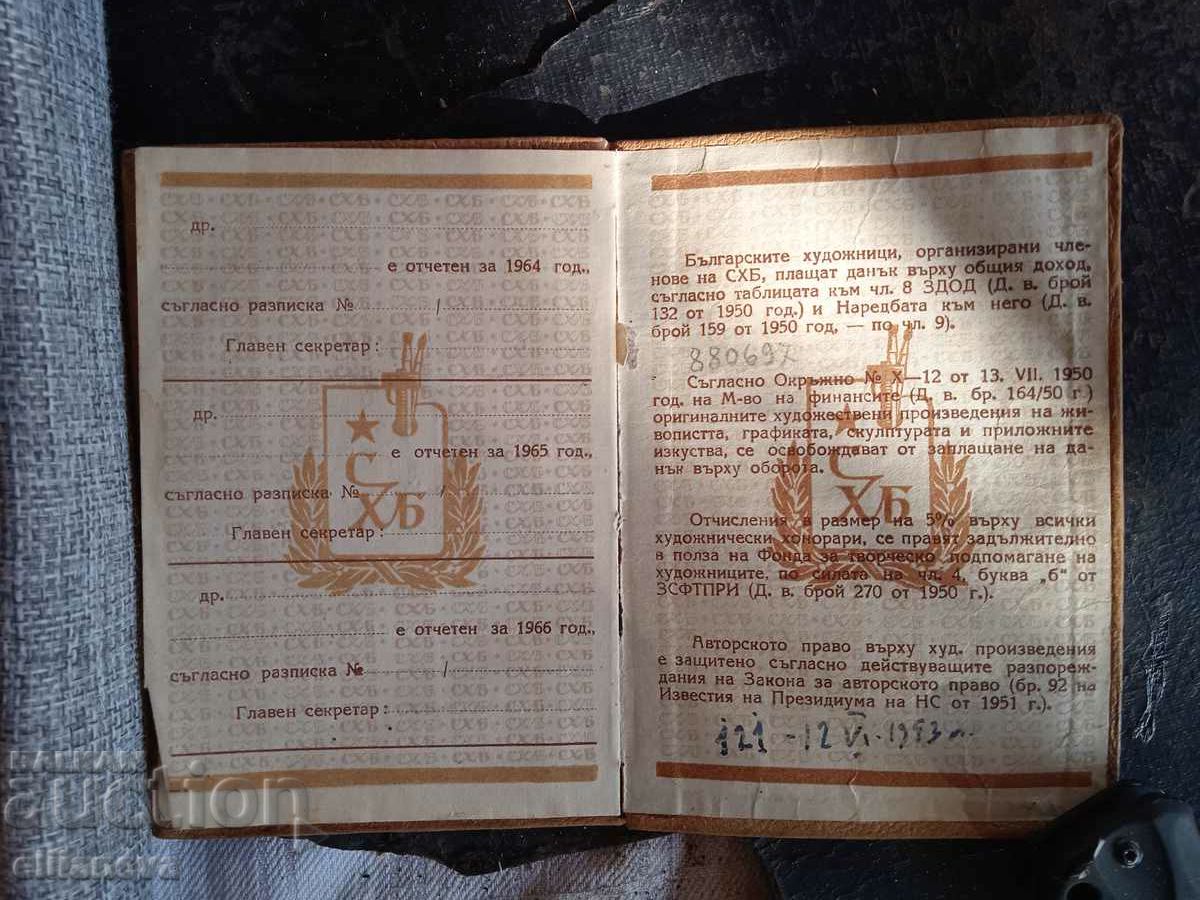 др.
е отчетен за 1964 год.,
съгласно разписка № /
Главен секретар:
др.
е отчетен за 1965 год.,
съгласно разписка № /
Главен секретар:
др.
е отчетен за 1966 год.,
съгласно разписка № /
Главен секретар:
С
ХБ
Българските художници, организирани чле-
нове на СХБ, плащат данък върху общия доход,
съгласно таблицата към чл. 8 ЗДОД (Д. в. брой
132 от 1950 год.) и Наредбата към него (Д. в.
брой 159 от 1950 год, — по чл. 9).
880697
Съгласно Окръжно № X—12 от 13. VII. 1950
год. на М-во на финансите (Д. в. бр. 164/50 г.)
оригиналните художествени произведения на жи-
вопистта, графиката, скулптурата и приложните
изкуства, се освобождават от заплащане на да-
нък върху оборота.
Отчисления в размер на 5% върху всички
художнически хонорари, се правят задължително
в полза на Фонда за творческо подпомагане на
художниците, по силата на чл. 4, буква „б“ от
ЗСФТПРИ (Д. в. брой 270 от 1950 г.).
Авторското право върху худ. произведения
е защитено съгласно действуващите разпореж-
дания на Закона за авторското право (бр. 92 на
Известия на Президиума на НС от 1951 г.).
121 - 12 VI. 1953 г.
С
ХБ
auction
elitanova